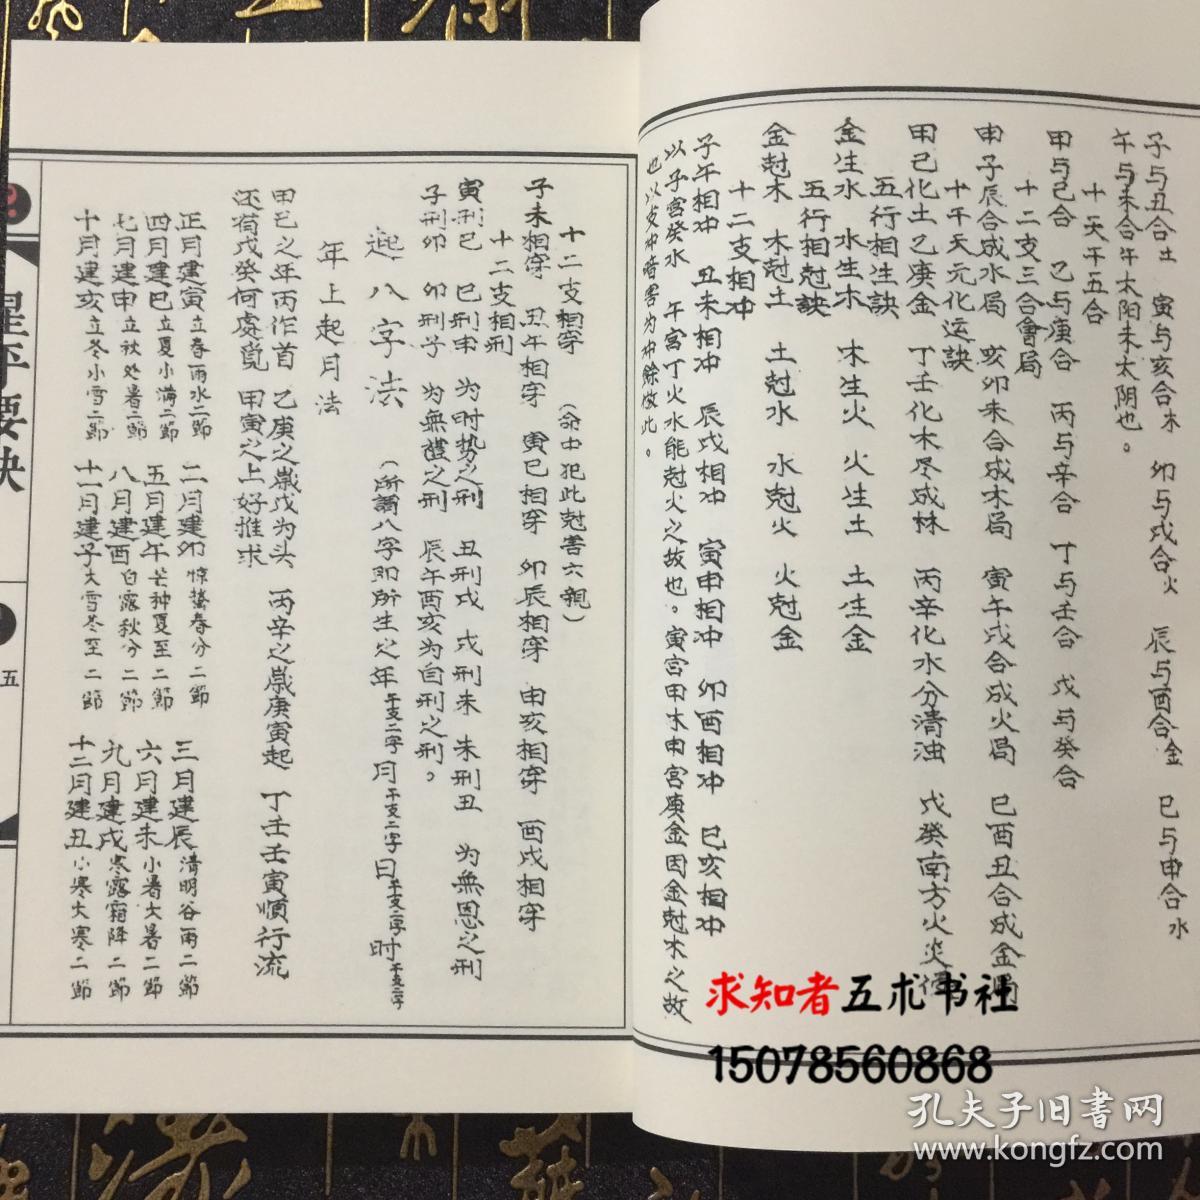 子与丑合土 寅与亥合木 卯与戌合火 辰与酉合金 巳与申合水
午与未合午太阳未太阴也。
十天干五合
甲与己合 乙与庚合 丙与辛合 丁与壬合 戊与癸合
十二支三合會局
申子辰合成水局 亥卯未合成木局 寅午戌合成火局 巳酉丑合成金局
十干天元化运訣
甲己化土乙庚金 丁壬化木尽成林 丙辛化水分清浊 戊癸南方火炎
五行相生訣
金生水 水生木 木生火 火生土 土生金
五行相尅訣
金尅木 木尅土 土尅水 水尅火 火尅金
十二支相冲
子午相冲 丑未相冲 辰戌相冲 寅申相冲 卯酉相冲 巳亥相冲
以子宫癸水 午宫丁火水能尅火之故也。寅宫甲木申宫庚金因金尅木之故
也以支冲暗害为冲餘倣此。
十二支相穿 (命中犯此尅害六親)
子未相穿 丑午相穿 寅巳相穿 卯辰相穿 申亥相穿 酉戌相穿
十二支相刑
寅刑巳 巳刑申 为时势之刑 丑刑戌 戌刑未 未刑丑 为無恩之刑
子刑卯 卯刑子 为無禮之刑 辰午酉亥为自刑之刑。
起八字法 (所謂八字即所生之年干支二字月干支二字日干支二字时干支二字
年上起月法
甲己之年丙作首 乙庚之歲戊为头 丙辛之歲庚寅起 丁壬壬寅順行流
还有戊癸何處覓 甲寅之上好推求
正月建寅立春雨水二節 二月建卯惊蟄春分二節 三月建辰清明谷雨二節
四月建巳立夏小满二節 五月建午芒种夏至二節 六月建未小暑大暑二節
七月建申立秋处暑二節 八月建酉白露秋分二節 九月建戌寒露霜降二節
十月建亥立冬小雪二節 十一月建子大雪冬至二節 十二月建丑小寒大寒二節
星平要訣
五
求知者五术书社
15078560868
孔夫子旧书网
www.kongfz.com